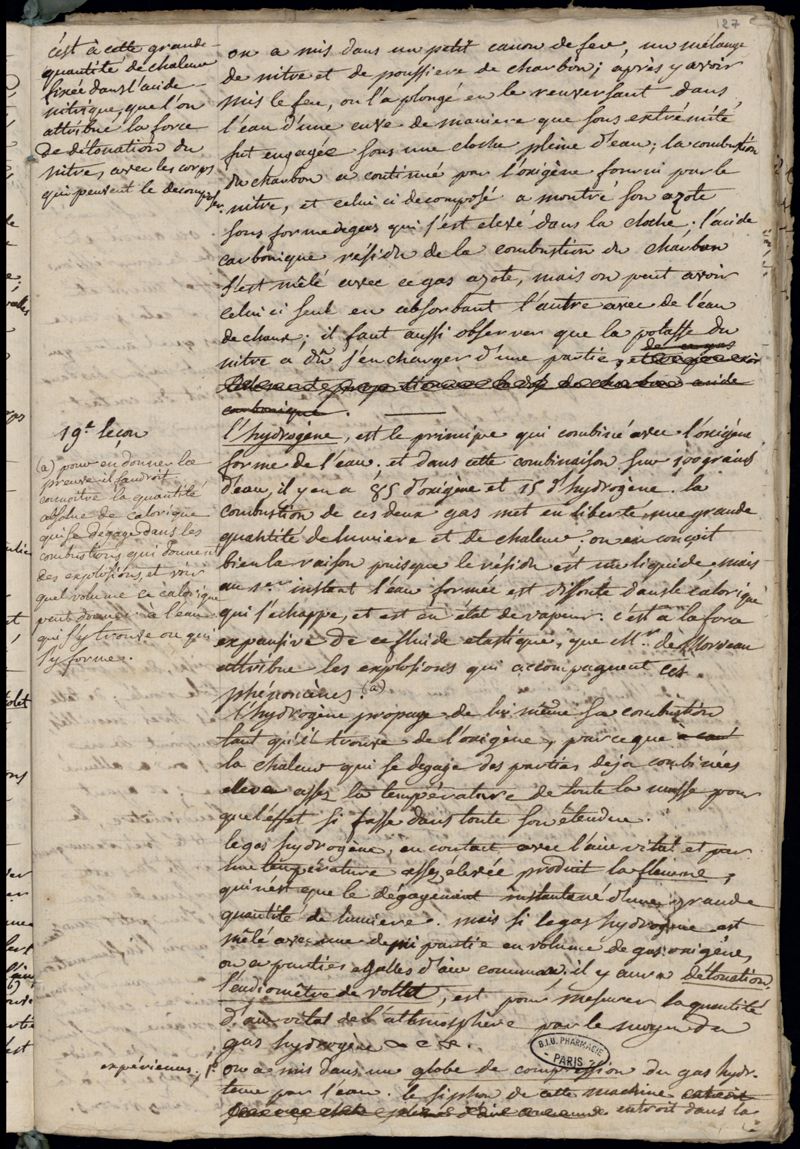 127
c'est a cette grande
quantité de chaleur
fixée dans l'acide
nitrique, que l'on
attribue la force
de détonation du
nitre, avec les corps
qui peuvent le decomposer.
on a mis dans un petit canon de fer, un mélange
de nitre et de poussiere de charbon; après y avoir
mis le feu, on l'a plongé en le renversant dans
l'eau d'une cuve de maniere que son extrémité
fut engagée sous une cloche pleine d'eau; la combustion
du charbon a continué par l'oxigène fourni par le
nitre, et celui ci decomposé a montré son azote
sous forme de gas qui s'est elevé dans la cloche. l'acide
carbonique résidu de la combustion du charbon
s'est mêlé avec ce gas azote, mais on peut avoir
celui ci seul en absorbant l'autre avec de l'eau
de chaux; il faut aussi observer que la potasse du
nitre a dû s'en charger d'une partie, de ce gas
acide
carbonique.
19e leçon
l'hydrogène, est le principe qui combiné avec l'oxigène
forme de l'eau. et dans cette combinaison sur 100 grains
d'eau, il y en a 85 d'oxigène et 15 d'hydrogène. la
combustion de ces deux gas met en liberté une grande
quantité de lumiere et de chaleur. on en conçoit
bien la raison puisque le résidu est un liquide, mais
au 1er instant l'eau formée est dissoute dans le calorique
qui s'echappe, et est en état de vapeur. c'est a la force
expansive de ce fluide elastique, que Mr de Morveau
attribue les explosions qui accompagnent ces
phénomènes. (a)
(a) pour en donner la
preuve il faudroit
connoître la quantité
absolue de calorique
qui se dégage dans les
combustions qui donnent
des explosions, et voir
quel volume ce calorique
peut donner a l'eau
qui s'y trouve ou qui
s'y forme.
l'hydrogène propage de lui même sa combustion
tant qu'il trouve de l'oxigène, parce que
la chaleur qui se degage des parties deja combinées
eleve assez la température de toute la masse pour
que l'effet si fasse dans toute son étendue.
le gas hydrogène, en contact avec l'air vital et par
une température assez élevée produit la flamme,
qui n'est que le dégagement instantané d'une grande
quantité de lumiere. mais si le gas hydrogène est
mêlé avec une demi partie en volume de gas oxigène,
ou a parties egalles d'air commun, il y aura détonation.
l'eudiomètre de voltat, est pour mesurer la quantité
d'air vital de l'athmosphère par le moyen du
gas hydrogène &c &.
B.I.U. PHARMACIE
PARIS
expériences. 1°
on a mis dans un globe de compression du gas hydr-
tenu par l'eau. le siphon de cette machine
entroit dans la